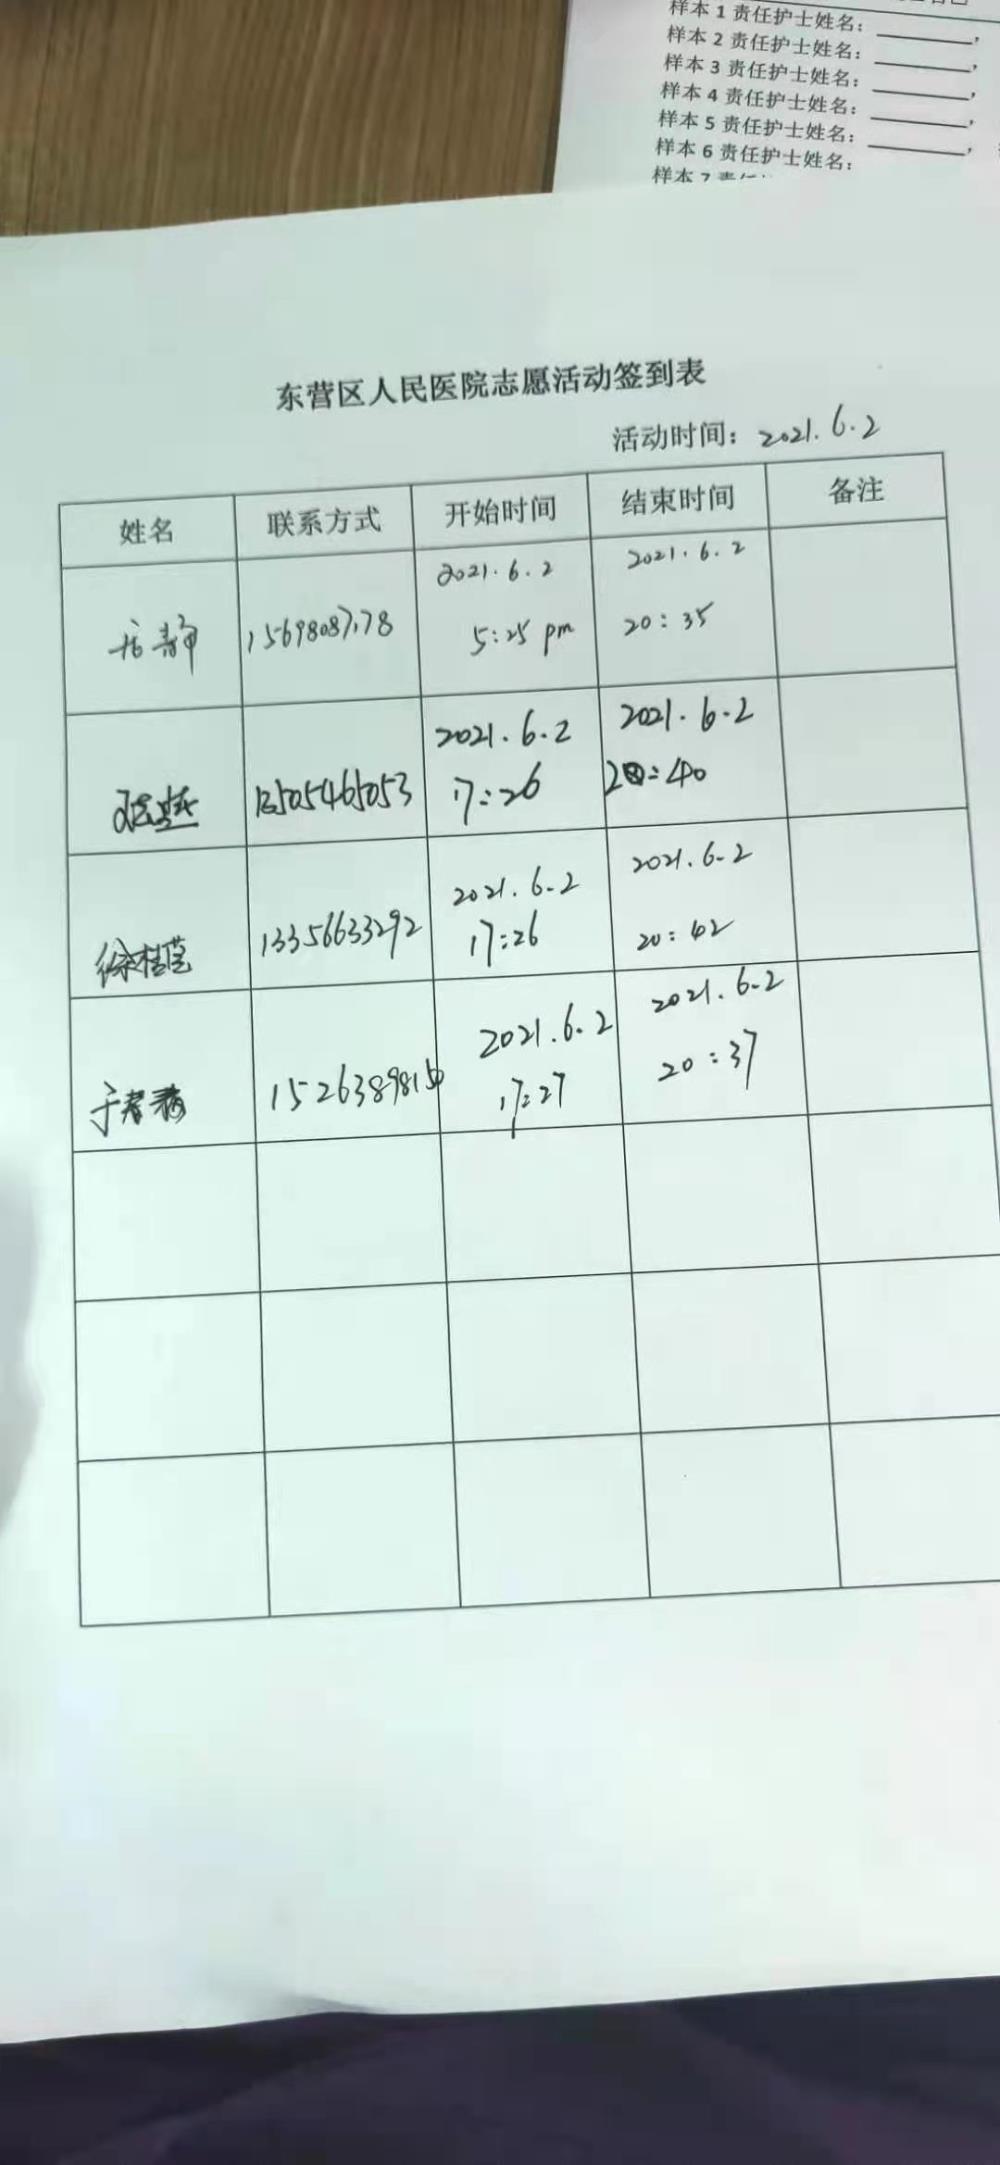 样本 1 责任护士姓名：
样本 2 责任护士姓名：
样本 3 责任护士姓名：
样本 4 责任护士姓名：
样本 5 责任护士姓名：
样本 6 责任护士姓名：
样本 7 责任
东营区人民医院志愿活动签到表
活动时间：2021.6.2
姓名 联系方式 开始时间 结束时间 备注
2021.6.2 2021.6.2
静 5:25 pm 20:35
2021.6.2 2021.6.2
13505465053 17:26 20:40
2021.6.2 2021.6.2
徐桂莲 13356633292 17:26 20:42
2021.6.2 2021.6.2
于春 15263898150 17:27 20:37